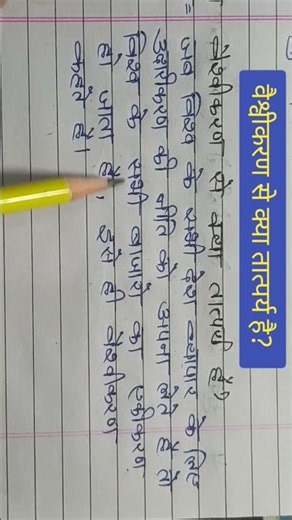 वैश्वीकरण से क्या तात्पर्य है?
वैश्वीकरण से क्या तात्पर्य है?
जब विश्व के सभी देश व्यापार के लिए
उदारीकरण की नीति को अपना लेते हैं तो
विश्व के सभी बाजारों का एकीकरण
हो जाता है, इसे ही वैश्वीकरण
कहते हैं।